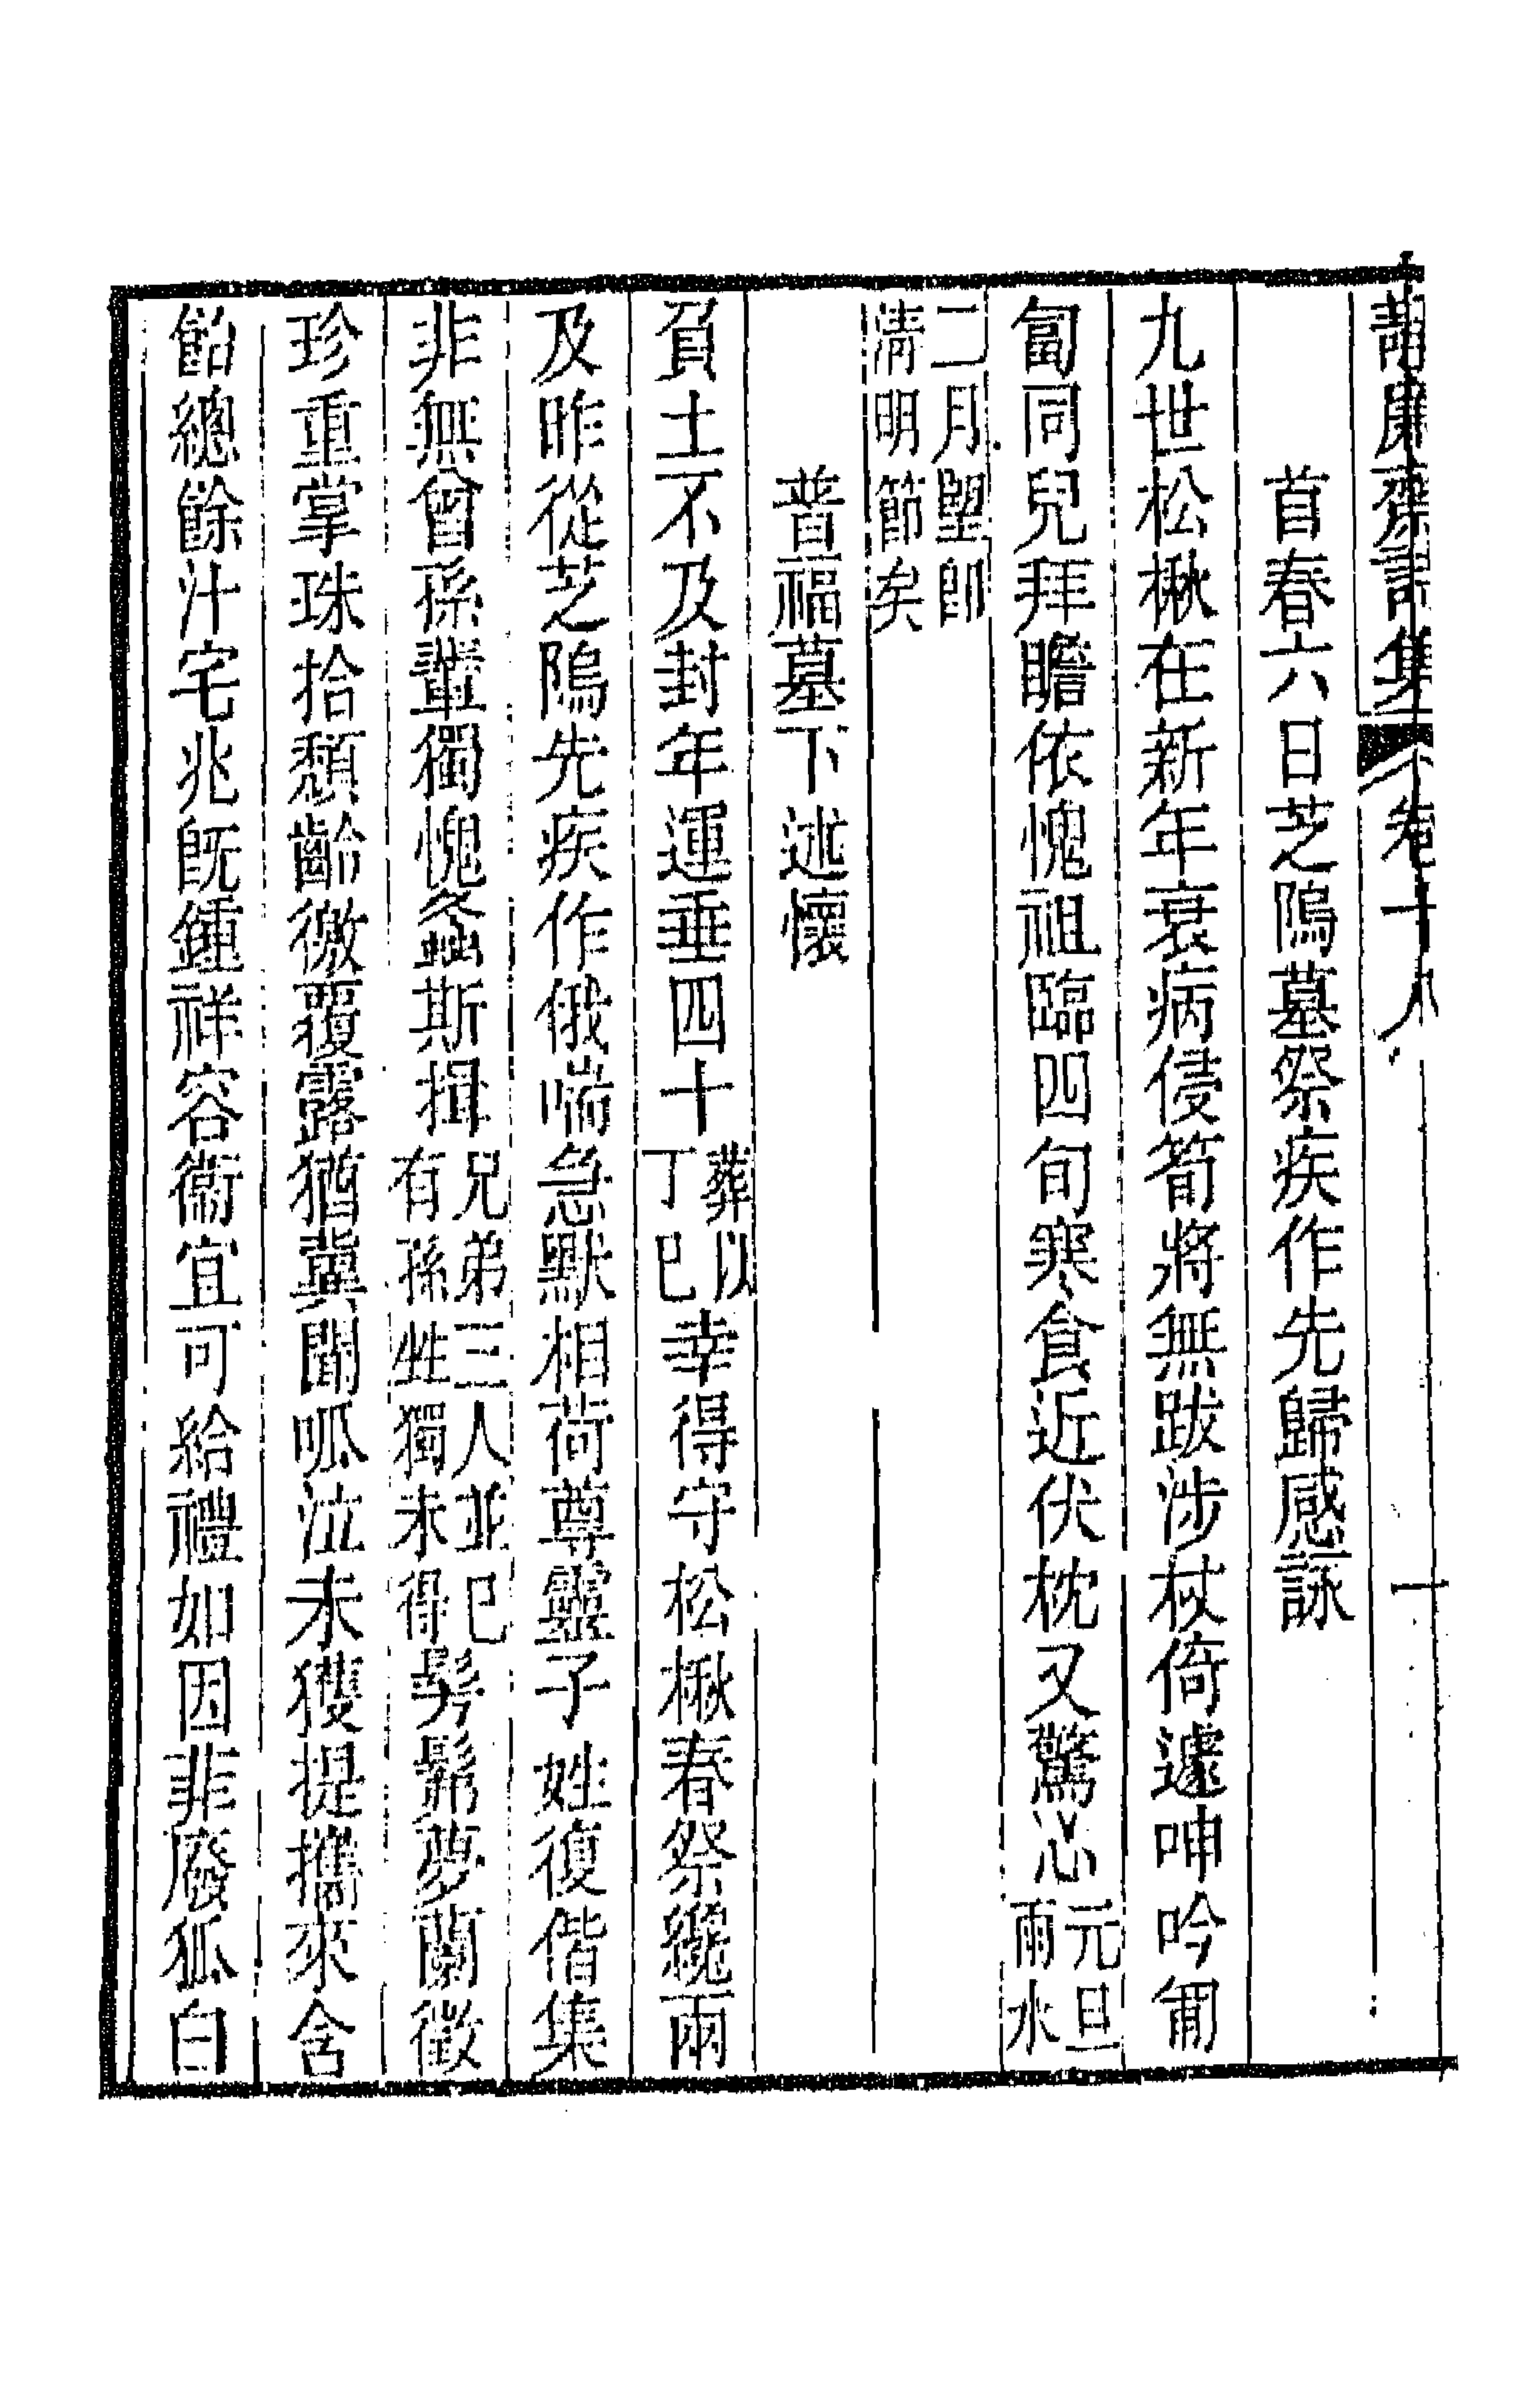 齋詩集 卷十八
首春六日芝隖墓祭疾作先歸感詠
九世松楸在新年衰病侵筍將無跋涉杖倚遽呻吟匍
匐同兒拜瞻依愧祖臨四旬寒食近伏枕又驚心元旦雨水
二月望卽清明節矣
普福墓下述懷
負土不及封年運垂四十葬以丁巳幸得守松楸春祭纔兩
及昨從芝隖先疾作俄喘急默相荷尊靈子姓復偕集
非無曾孫輩獨愧螽斯揖兄弟三人並已有孫甡獨未得髣髴夢蘭徵
珍重掌珠拾頹齡徼覆露猶冀聞呱泣未獲提攜來含
飴總餘汁宅兆旣鍾祥容衞宜可給禮如因菲廢狐白